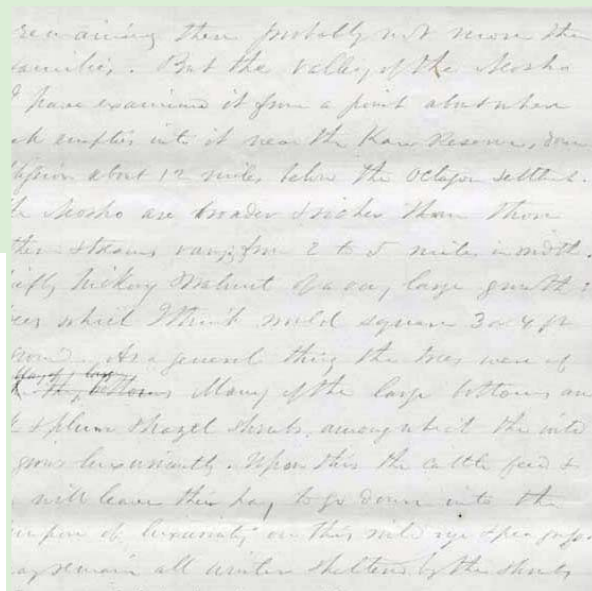 remaining there probably not more than
families. But the valley of the Neosho
I have examined it from a point about where
empties into it near the Kaw Reserve, down
Mission about 12 miles below the Octagon settlement.
the Neosho are broader & richer than those
other streams varying from 2 to 5 miles in width.
chiefly hickory & walnut of a very large growth
trees which I think would square 3 or 4 ft
As a general thing the trees were of
bottoms Many of the large bottoms are
& plum & hazel shrubs, among which the wild
grows luxuriantly. Upon this the cattle feed &
will leave their hay to go down into the
of luxuriating on this wild rye & pea
may remain all winter sheltered by the shrubs